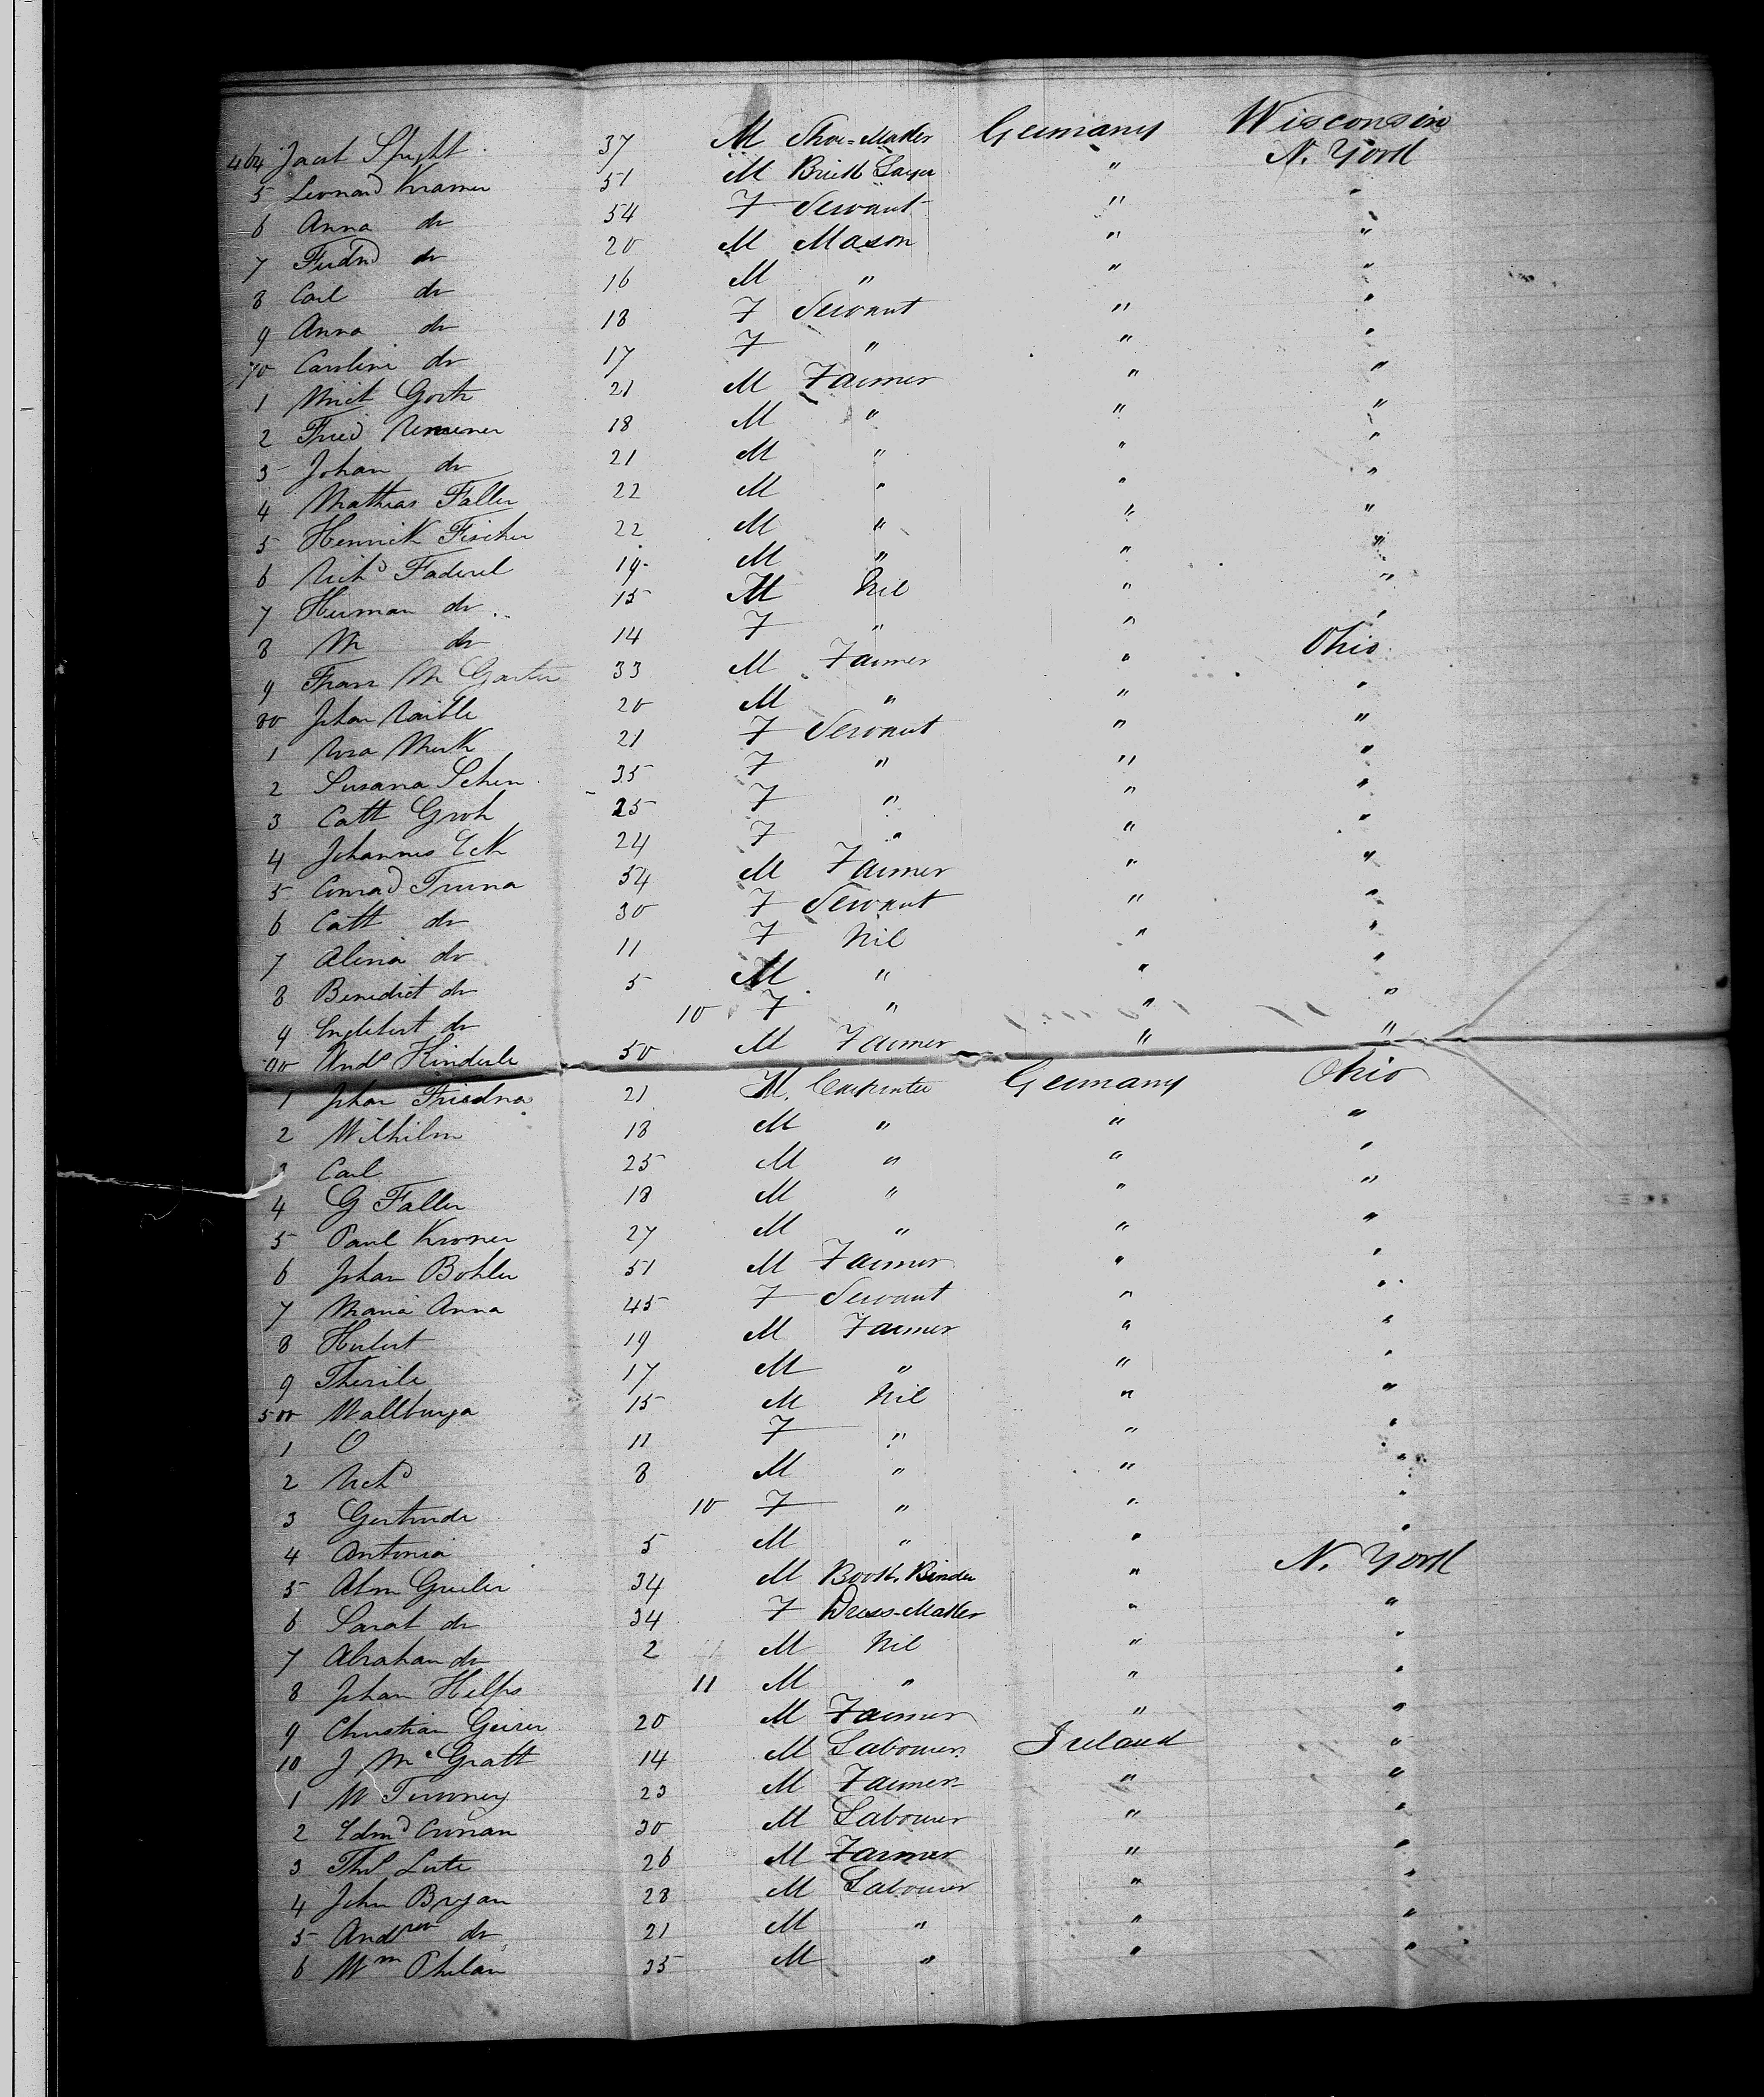 464 Jacob Spight 37 M Shoe=Maker Germany Wisconsin
5 Leonard Kramer 51 M Brick Layer " N. York
6 Anna do 54 F Servant " "
7 Fredrd do 20 M Mason " "
8 Carl do 16 M " " "
9 Anna do 18 F Servant " "
70 Caroline do 17 F " " "
1 Mich Gorth 21 M Farmer " "
2 Fried 18 M " " "
3 Johan do 21 M " " "
4 Mathias Faller 22 M " " "
5 Henrick Fischer 22 M " " "
6 Richd Faderel 19 M " " "
7 Herman do 15 M Nil " "
8 M do 14 F " " "
9 Franz M Garter 33 M Farmer " Ohio
80 Johan Raible 20 M " " "
1 Rosa Merk 21 F Servant " "
2 Susana Schen 35 F " " "
3 Cath Groh 25 F " " "
4 Johannes Eck 24 F " " "
5 Conrad Truna 54 M Farmer " "
6 Cath do 30 F Servant " "
7 Alina do 11 F Nil " "
8 Benedict do 5 M " " "
9 Englebert do 10 F " " "
90 Andw Hinderle 50 M Farmer " "
1 Johan Friedna 21 M. Carpenter Germany Ohio
2 Wilhilm 18 M " " "
3 Carl 25 M " " "
4 G Faller 18 M " " "
5 Paul Kroner 27 M " " "
6 Johan Bohler 51 M Farmer " "
7 Maria Anna 45 F Servant " "
8 Hubert 19 M Farmer " "
9 Therile 17 M " " "
500 Wallburga 15 M Nil " "
1 O 11 F " " "
2 Richd 8 M " " "
3 Gertrude 10 F " " "
4 Antonia 5 M " " "
5 Abm Grieler 34 M Book Binder " N. York
6 Sarah do 34 F Dress-Maker " "
7 Abraham do 2 M Nil " "
8 Johan Helps 11 M " " "
9 Christian Geiser 20 M Farmer " "
10 J McGratt 14 M Labourer Ireland "
1 W Turoney 23 M Farmer " "
2 Edmd Cronan 30 M Labourer " "
3 Ths Lute 26 M Farmer " "
4 John Bryan 28 M Labourer " "
5 Andrew do 21 M " " "
6 Wm Philan 35 M " " "